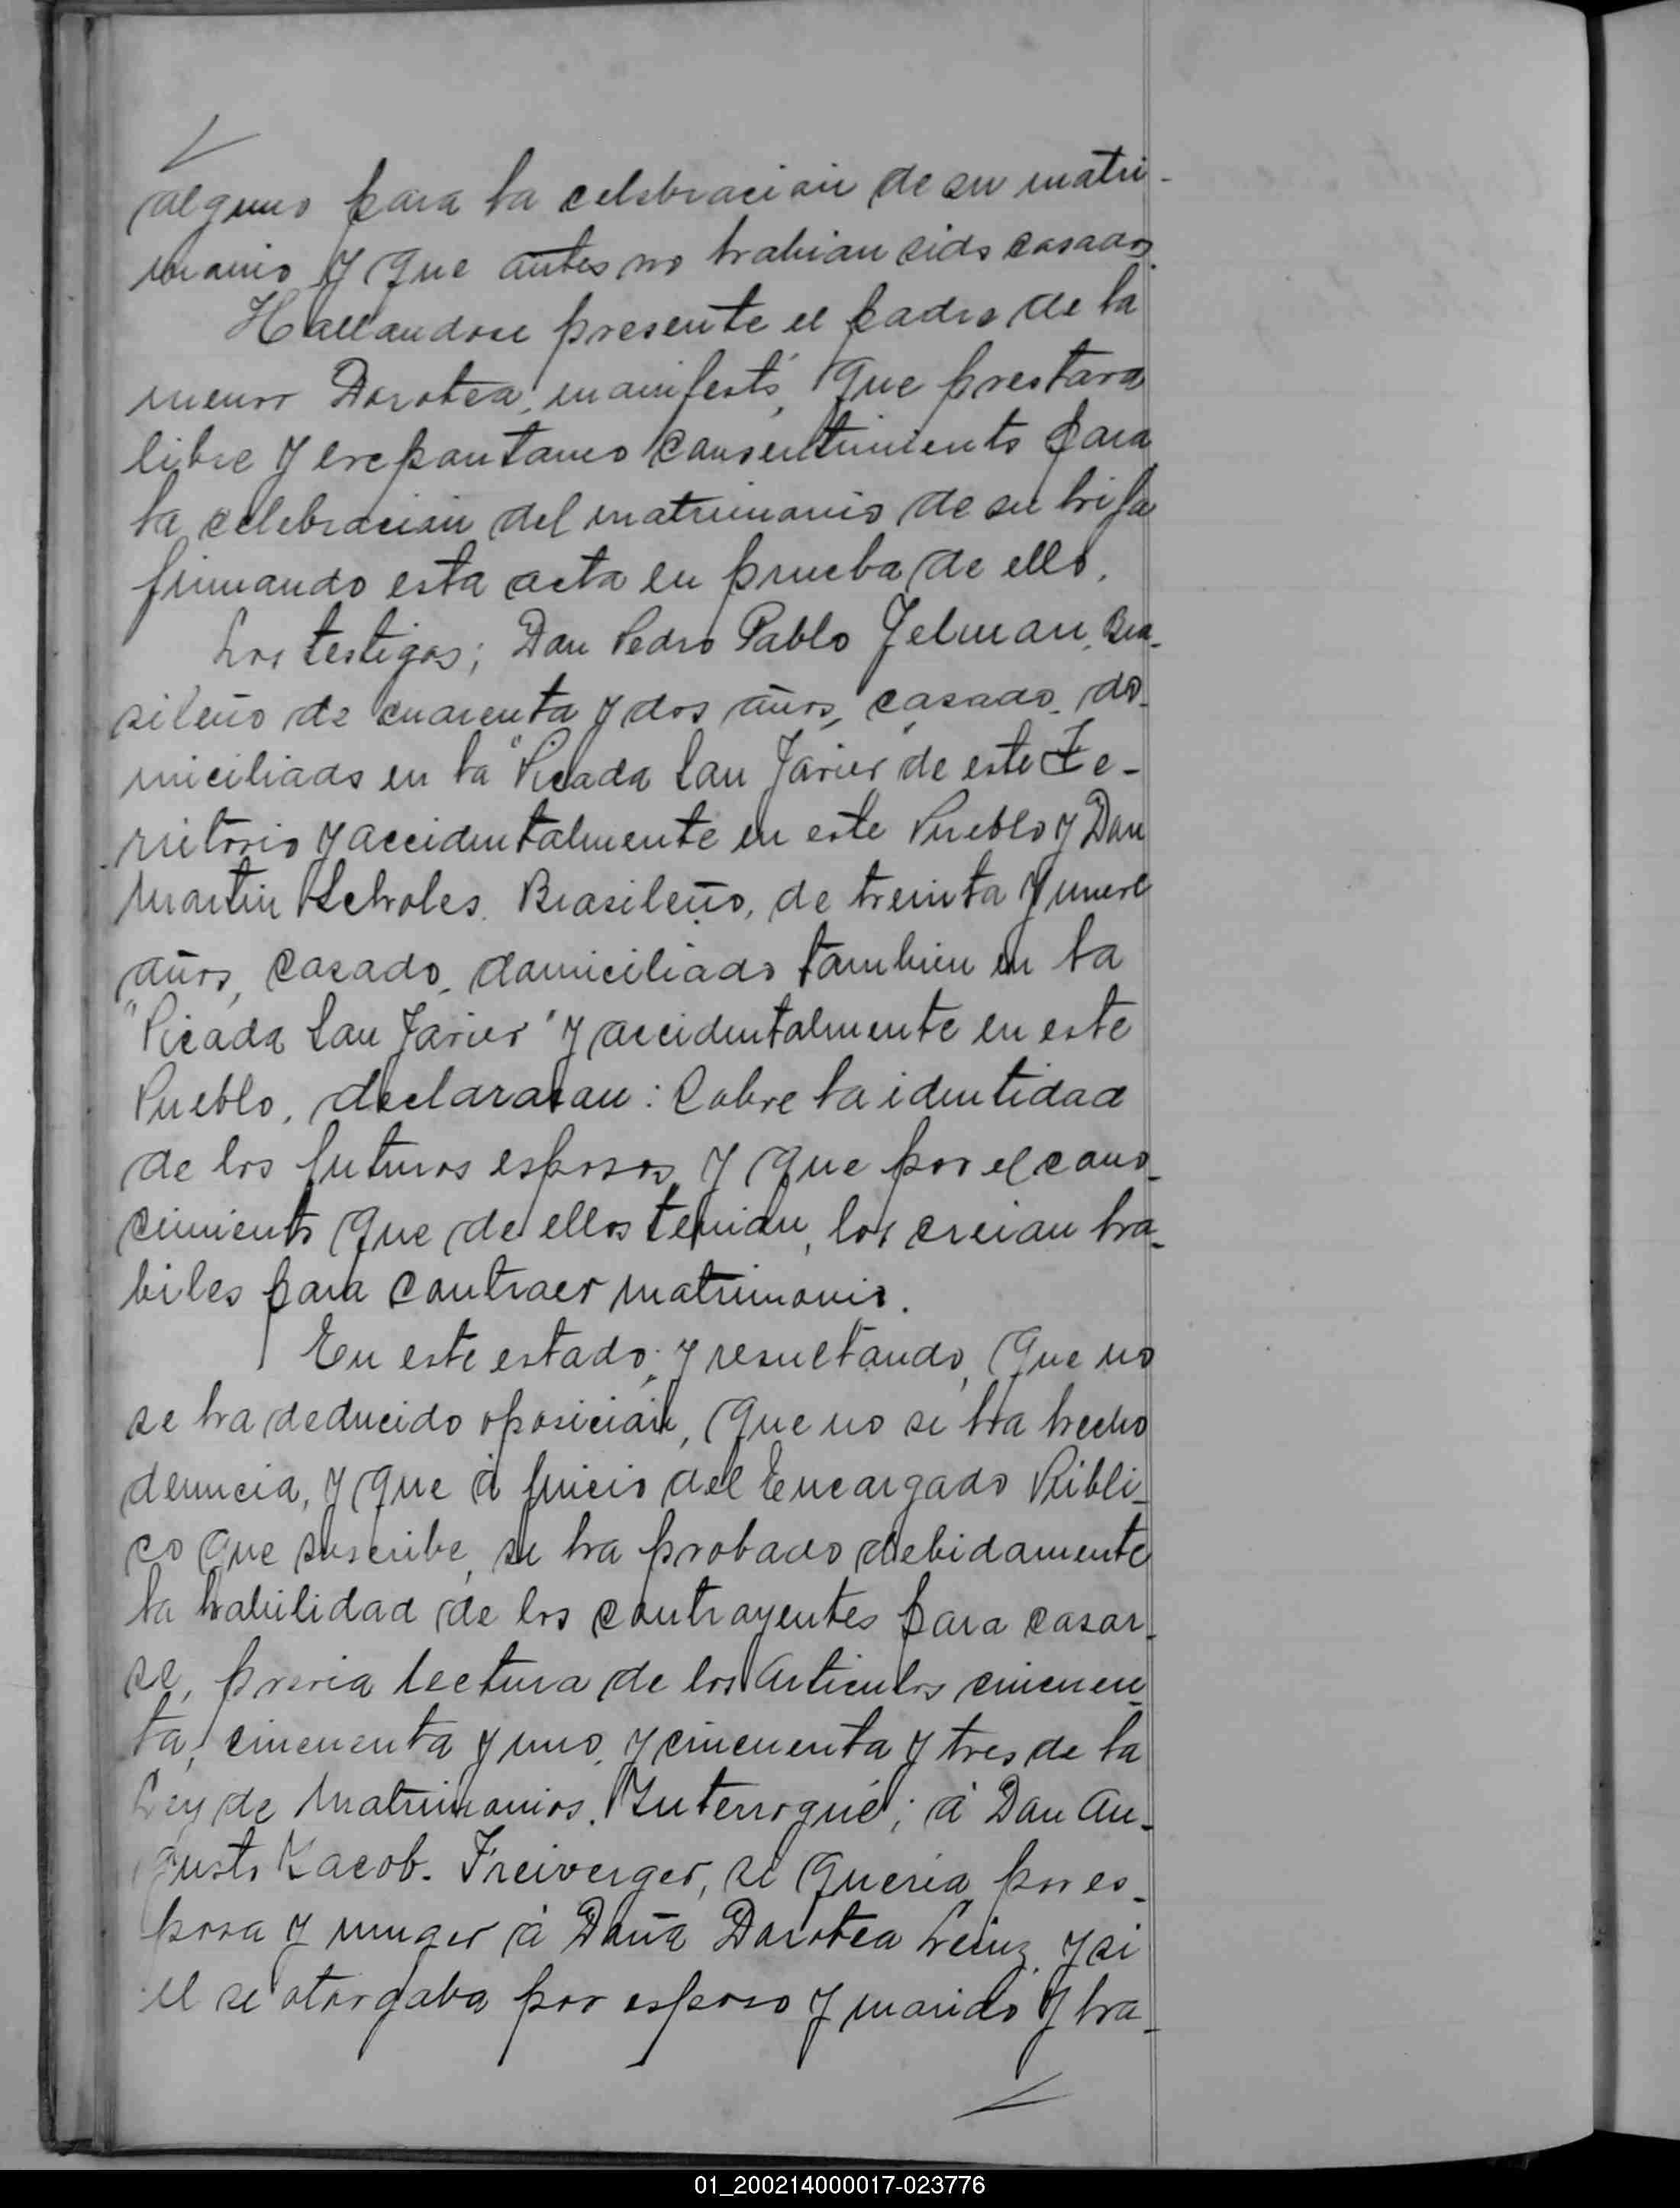 alguno para la celebracion de su matri-
monio y que antes no habian sido casados.
Hallandose presente el padre de la
menor Dorotea, manifestó, que prestava
libre y expontaneo consentimiento para
la celebracion del matrimonio de su hija
firmando esta acta en prueba de ello.
Los testigos; Don Pedro Pablo Jelman, Bra-
sileño de cuarenta y dos años, casado, do-
miciliado en la "Picada San Javier" de este Te-
rritorio y accidentalmente en este Pueblo y Don
Martin Scholes. Brasileño, de treinta y nueve
años, casado, domiciliado tambien en la
"Picada San Javier" y accidentalmente en este
Pueblo, declararan: Sobre la identidad
de los futuros esposos, y que por el cono-
cimiento que de ellos tenian, los creian ha-
biles para contraer matrimonio.
En este estado; y resultando, que no
se ha deducido oposición, que no se ha hecho
denuncia, y que á juicio del Encargado Públi-
co que suscribe, se ha probado debidamente
la habilidad de los contrayentes para casar-
se, previa lectura de los Articulos cincuen-
ta, cincuenta y uno, y cincuenta y tres de la
Ley de Matrimonios. Interrogué; á Don Au-
gusto Jacob. Freiverger, si queria por es-
posa y muger á Doña Dorotea Leinz, y si
el se otorgaba por esposo y marido y ha-
01_200214000017-023776